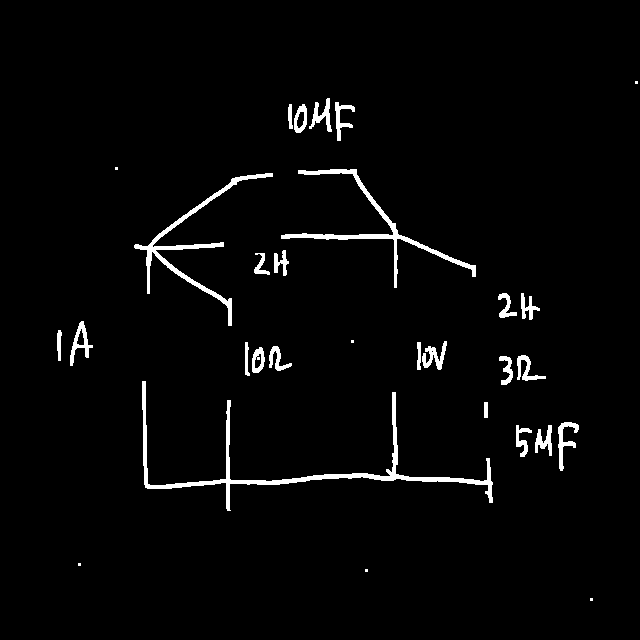 10MF
2H
2H
1A
10Ω
10V
3Ω
5MF